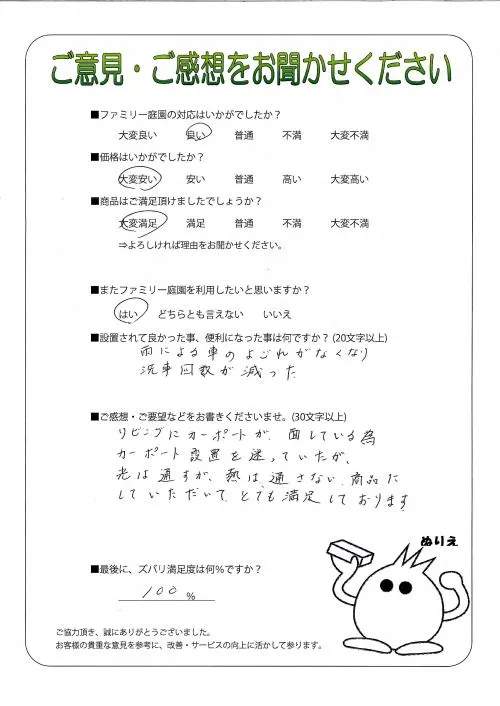 ご意見・ご感想をお聞かせください
■ファミリー庭園の対応はいかがでしたか？
大変良い 良い 普通 不満 大変不満
■価格はいかがでしたか？
大変安い 安い 普通 高い 大変高い
■商品はご満足頂けましたでしょうか？
大変満足 満足 普通 不満 大変不満
⇒よろしければ理由をお聞かせください。
■またファミリー庭園を利用したいと思いますか？
はい どちらとも言えない いいえ
■設置されて良かった事、便利になった事は何ですか？(20文字以上)
雨による車のよごれがなくなり
洗車回数が減った
■ご感想・ご要望などをお書きくださいませ。(30文字以上)
リビングにカーポートが、面している為
カーポート設置を迷っていたが、
光は通すが、熱は、通さない商品に
していただいてとても満足しております
ぬりえ
■最後に、ズバリ満足度は何％ですか？
100 ％
ご協力頂き、誠にありがとうございました。
お客様の貴重な意見を参考に、改善・サービスの向上に活かして参ります。